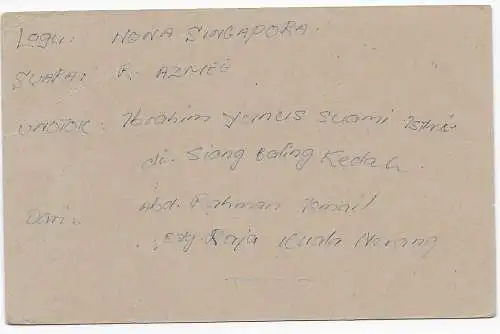 Lagu: NONA SINGAPORA.
SUARA: R. AZMEE
UNTOK: Ibrahim Yunus Suami Isteri
di. Siong Baling Kedah.
Dari: Abd. Rahman Ismail
Raja Kuala Nerang